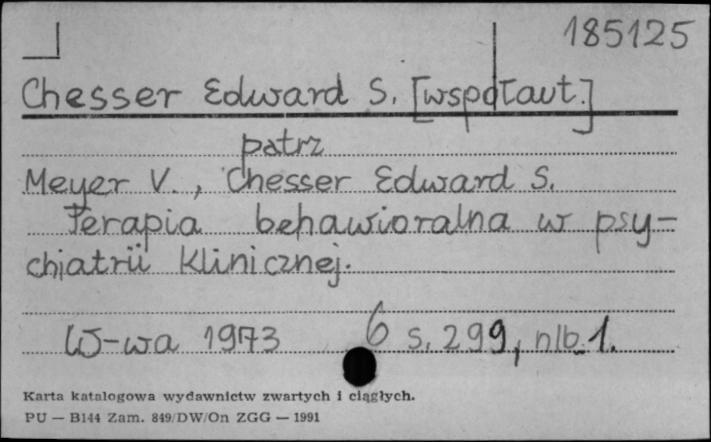 185125
Chesser Edward S. [współaut.]
patrz
Meyer V., Chesser Edward S.
Terapia behawioralna w psy-
chiatrii klinicznej.
W-wa 1973 6 s. 299, nlb. 1.
Karta katalogowa wydawnictw zwartych i ciągłych.
PU — B144 Zam. 849/DW/On ZGG — 1991